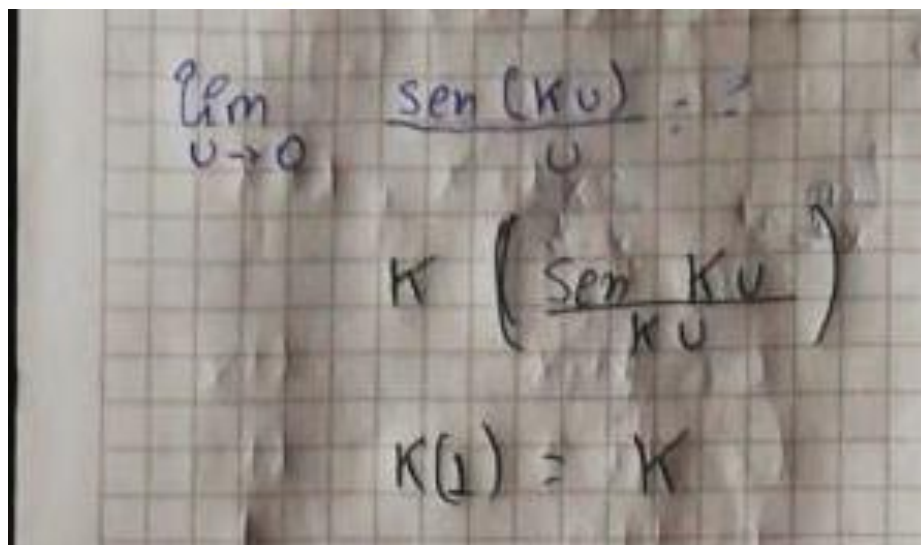 lim sen (KU) = ?
U→0 U
K ( Sen KU )
KU
K(1) = K